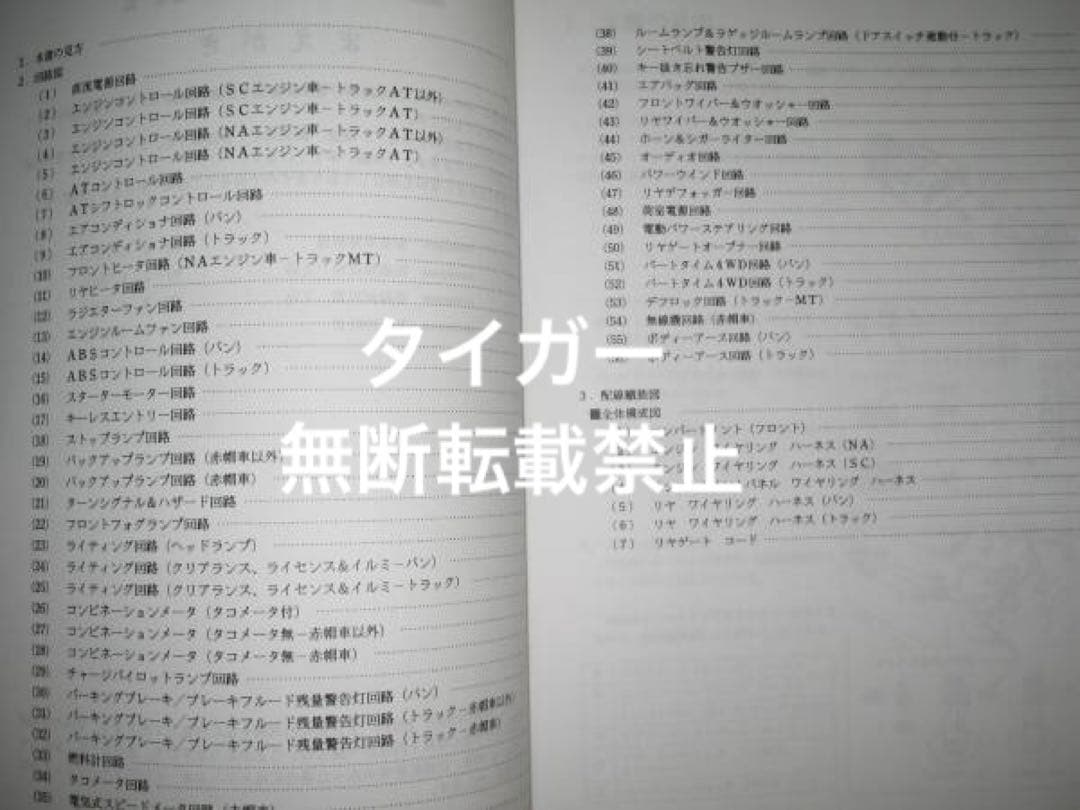 1. 本書の見方
2. 回路図
(1) 直流電源回路
(2) エンジンコントロール回路(SCエンジン車-トラックAT以外)
(3) エンジンコントロール回路(SCエンジン車-トラックAT)
(4) エンジンコントロール回路(NAエンジン車-トラックAT以外)
(5) エンジンコントロール回路(NAエンジン車-トラックAT)
(6) ATコントロール回路
(7) ATシフトロックコントロール回路
(8) エアコンディショナ回路(バン)
(9) エアコンディショナ回路(トラック)
(10) フロントヒータ回路(NAエンジン車-トラックMT)
(11) リヤヒータ回路
(12) ラジエターファン回路
(13) エンジンルームファン回路
(14) ABSコントロール回路(バン)
(15) ABSコントロール回路(トラック)
(16) スターターモーター回路
(17) キーレスエントリー回路
(18) ストップランプ回路
(19) バックアップランプ回路(赤帽車以外)
(20) バックアップランプ回路(赤帽車)
(21) ターンシグナル&ハザード回路
(22) フロントフォグランプ回路
(23) ライティング回路(ヘッドランプ)
(24) ライティング回路(クリアランス、ライセンス&イルミーバン)
(25) ライティング回路(クリアランス、ライセンス&イルミートラック)
(26) コンビネーションメータ(タコメータ付)
(27) コンビネーションメータ(タコメータ無-赤帽車以外)
(28) コンビネーションメータ(タコメータ無-赤帽車)
(29) チャージパイロットランプ回路
(30) パーキングブレーキ/ブレーキフルード残量警告灯回路(バン)
(31) パーキングブレーキ/ブレーキフルード残量警告灯回路(トラック-赤帽車以外)
(32) パーキングブレーキ/ブレーキフルード残量警告灯回路(トラック-赤帽車)
(33) 燃料計回路
(34) タコメータ回路
(35) 電気式スピードメータ回路(赤帽車)
(38) ルームランプ&ラゲッジルームランプ回路(ドアスイッチ連動付-トラック)
(39) シートベルト警告灯回路
(40) キー抜き忘れ警告ブザー回路
(41) エアバッグ回路
(42) フロントワイパー&ウオッシャー回路
(43) リヤワイパー&ウオッシャー回路
(44) ホーン&シガーライター回路
(45) オーディオ回路
(46) パワーウインド回路
(47) リヤデフォッガー回路
(48) 荷室電源回路
(49) 電動パワーステアリング回路
(50) リヤゲートオープナー回路
(51) パートタイム4WD回路(バン)
(52) パートタイム4WD回路(トラック)
(53) デフロック回路(トラック-MT)
(54) 無線機回路(赤帽車)
(55) ボディーアース回路(バン)
ボディーアース回路(トラック)
3. 配線艤装図
■全体構成図
(フロント)
ワイヤリング ハーネス(NA)
ワイヤリング ハーネス(SC)
パネル ワイヤリング ハーネス
(5) リヤ ワイヤリング ハーネス(バン)
(6) リヤ ワイヤリング ハーネス(トラック)
(7) リヤゲート コード
タイガー
無断転載禁止